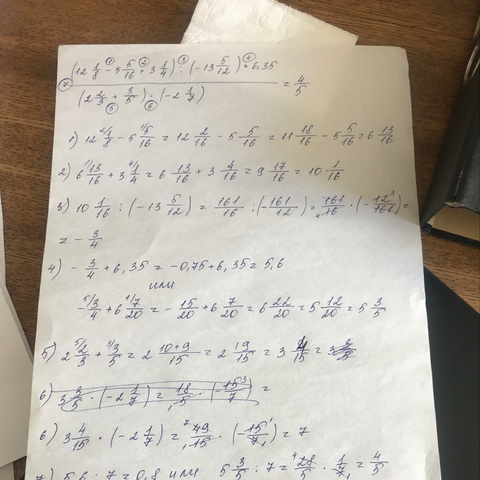 (12 1/8 - 5 5/16 + 3 1/4) : (-13 5/12) + 6,35
(2 2/3 + 3/5) · (-2 1/7) = 4/5
1) 12 1/8 - 5 5/16 = 12 2/16 - 5 5/16 = 11 18/16 - 5 5/16 = 6 13/16
2) 6 13/16 + 3 1/4 = 6 13/16 + 3 4/16 = 9 17/16 = 10 1/16
3) 10 1/16 : (-13 5/12) = 161/16 : (-161/12) = 161/16 · (-12/161) =
= - 3/4
4) - 3/4 + 6,35 = -0,75 + 6,35 = 5,6
или
- 3/4 + 6 7/20 = - 15/20 + 6 7/20 = 6 22/20 = 5 12/20 = 5 3/5
5) 2 2/3 + 3/5 = 2 10+9/15 = 2 19/15 = 3 4/15 =
6) 3 3/5 · (-2 1/7) = 18/5 · (-15/7) =
6) 3 4/15 · (-2 1/7) = 49/15 · (-15/7) = 7
7) 5,6 : 7 = 0,8 или 5 3/5 : 7 = 28/5 · 1/7 = 4/5